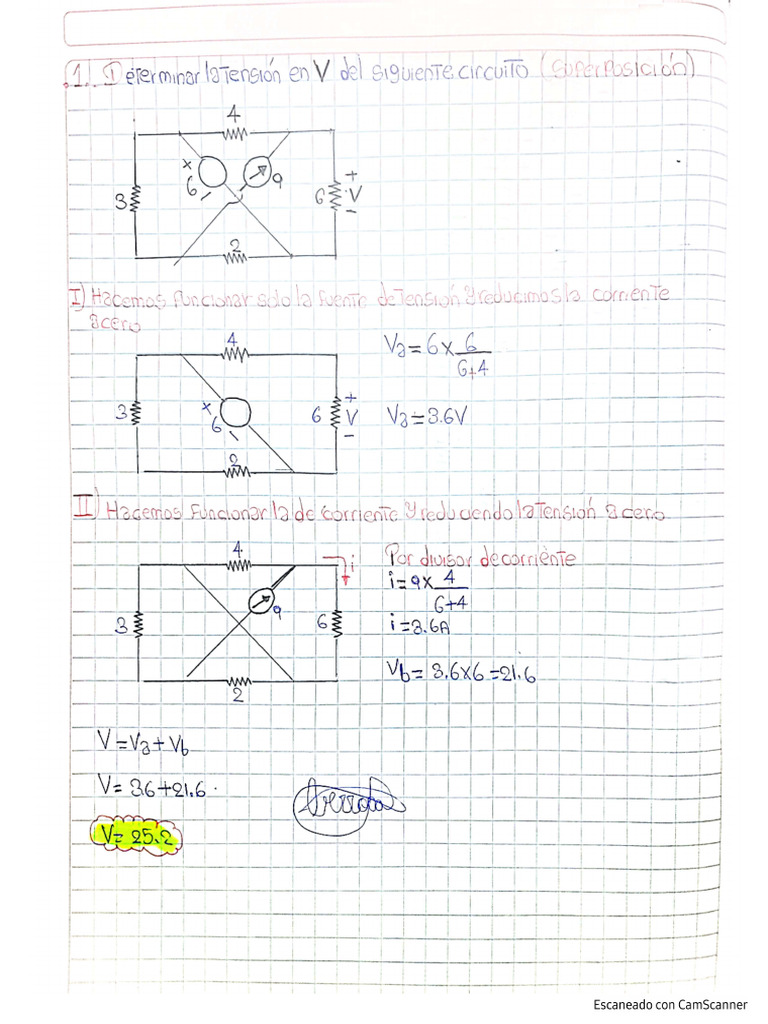 .1. Determinar la tensión en V del siguiente circuito (Superposición)
4
x
6
9
3
6
+
V
-
2
I) Hacemos funcionar solo la fuente de tensión y reducimos la corriente
a cero
4
Va = 6 x 6
6+4
x
6
3
6
+
V
-
Va = 3.6V
2
II) Hacemos funcionar la de corriente y reduciendo la tensión a cero
4
i
Por divisor de corriente
i = 9 x 4
6+4
9
3
6
i = 3.6A
2
Vb = 3.6x6 = 21.6
V = Va + Vb
V = 3.6+21.6
V = 25.2
Escaneado con CamScanner